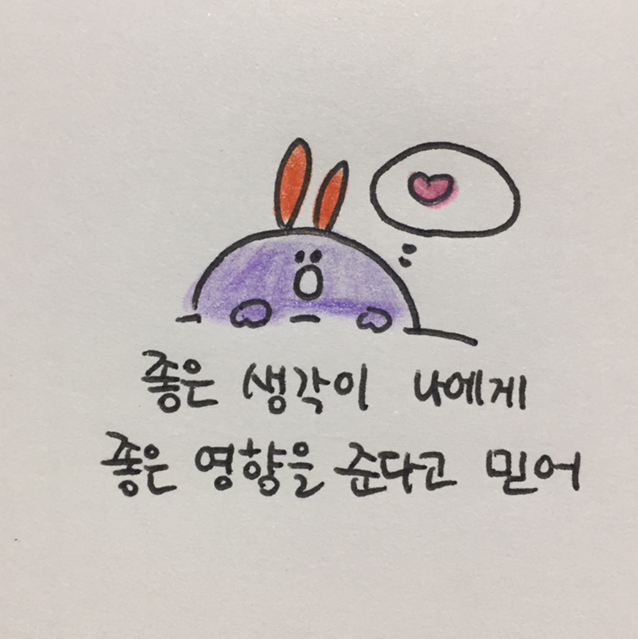 좋은 생각이 나에게
좋은 영향을 준다고 믿어